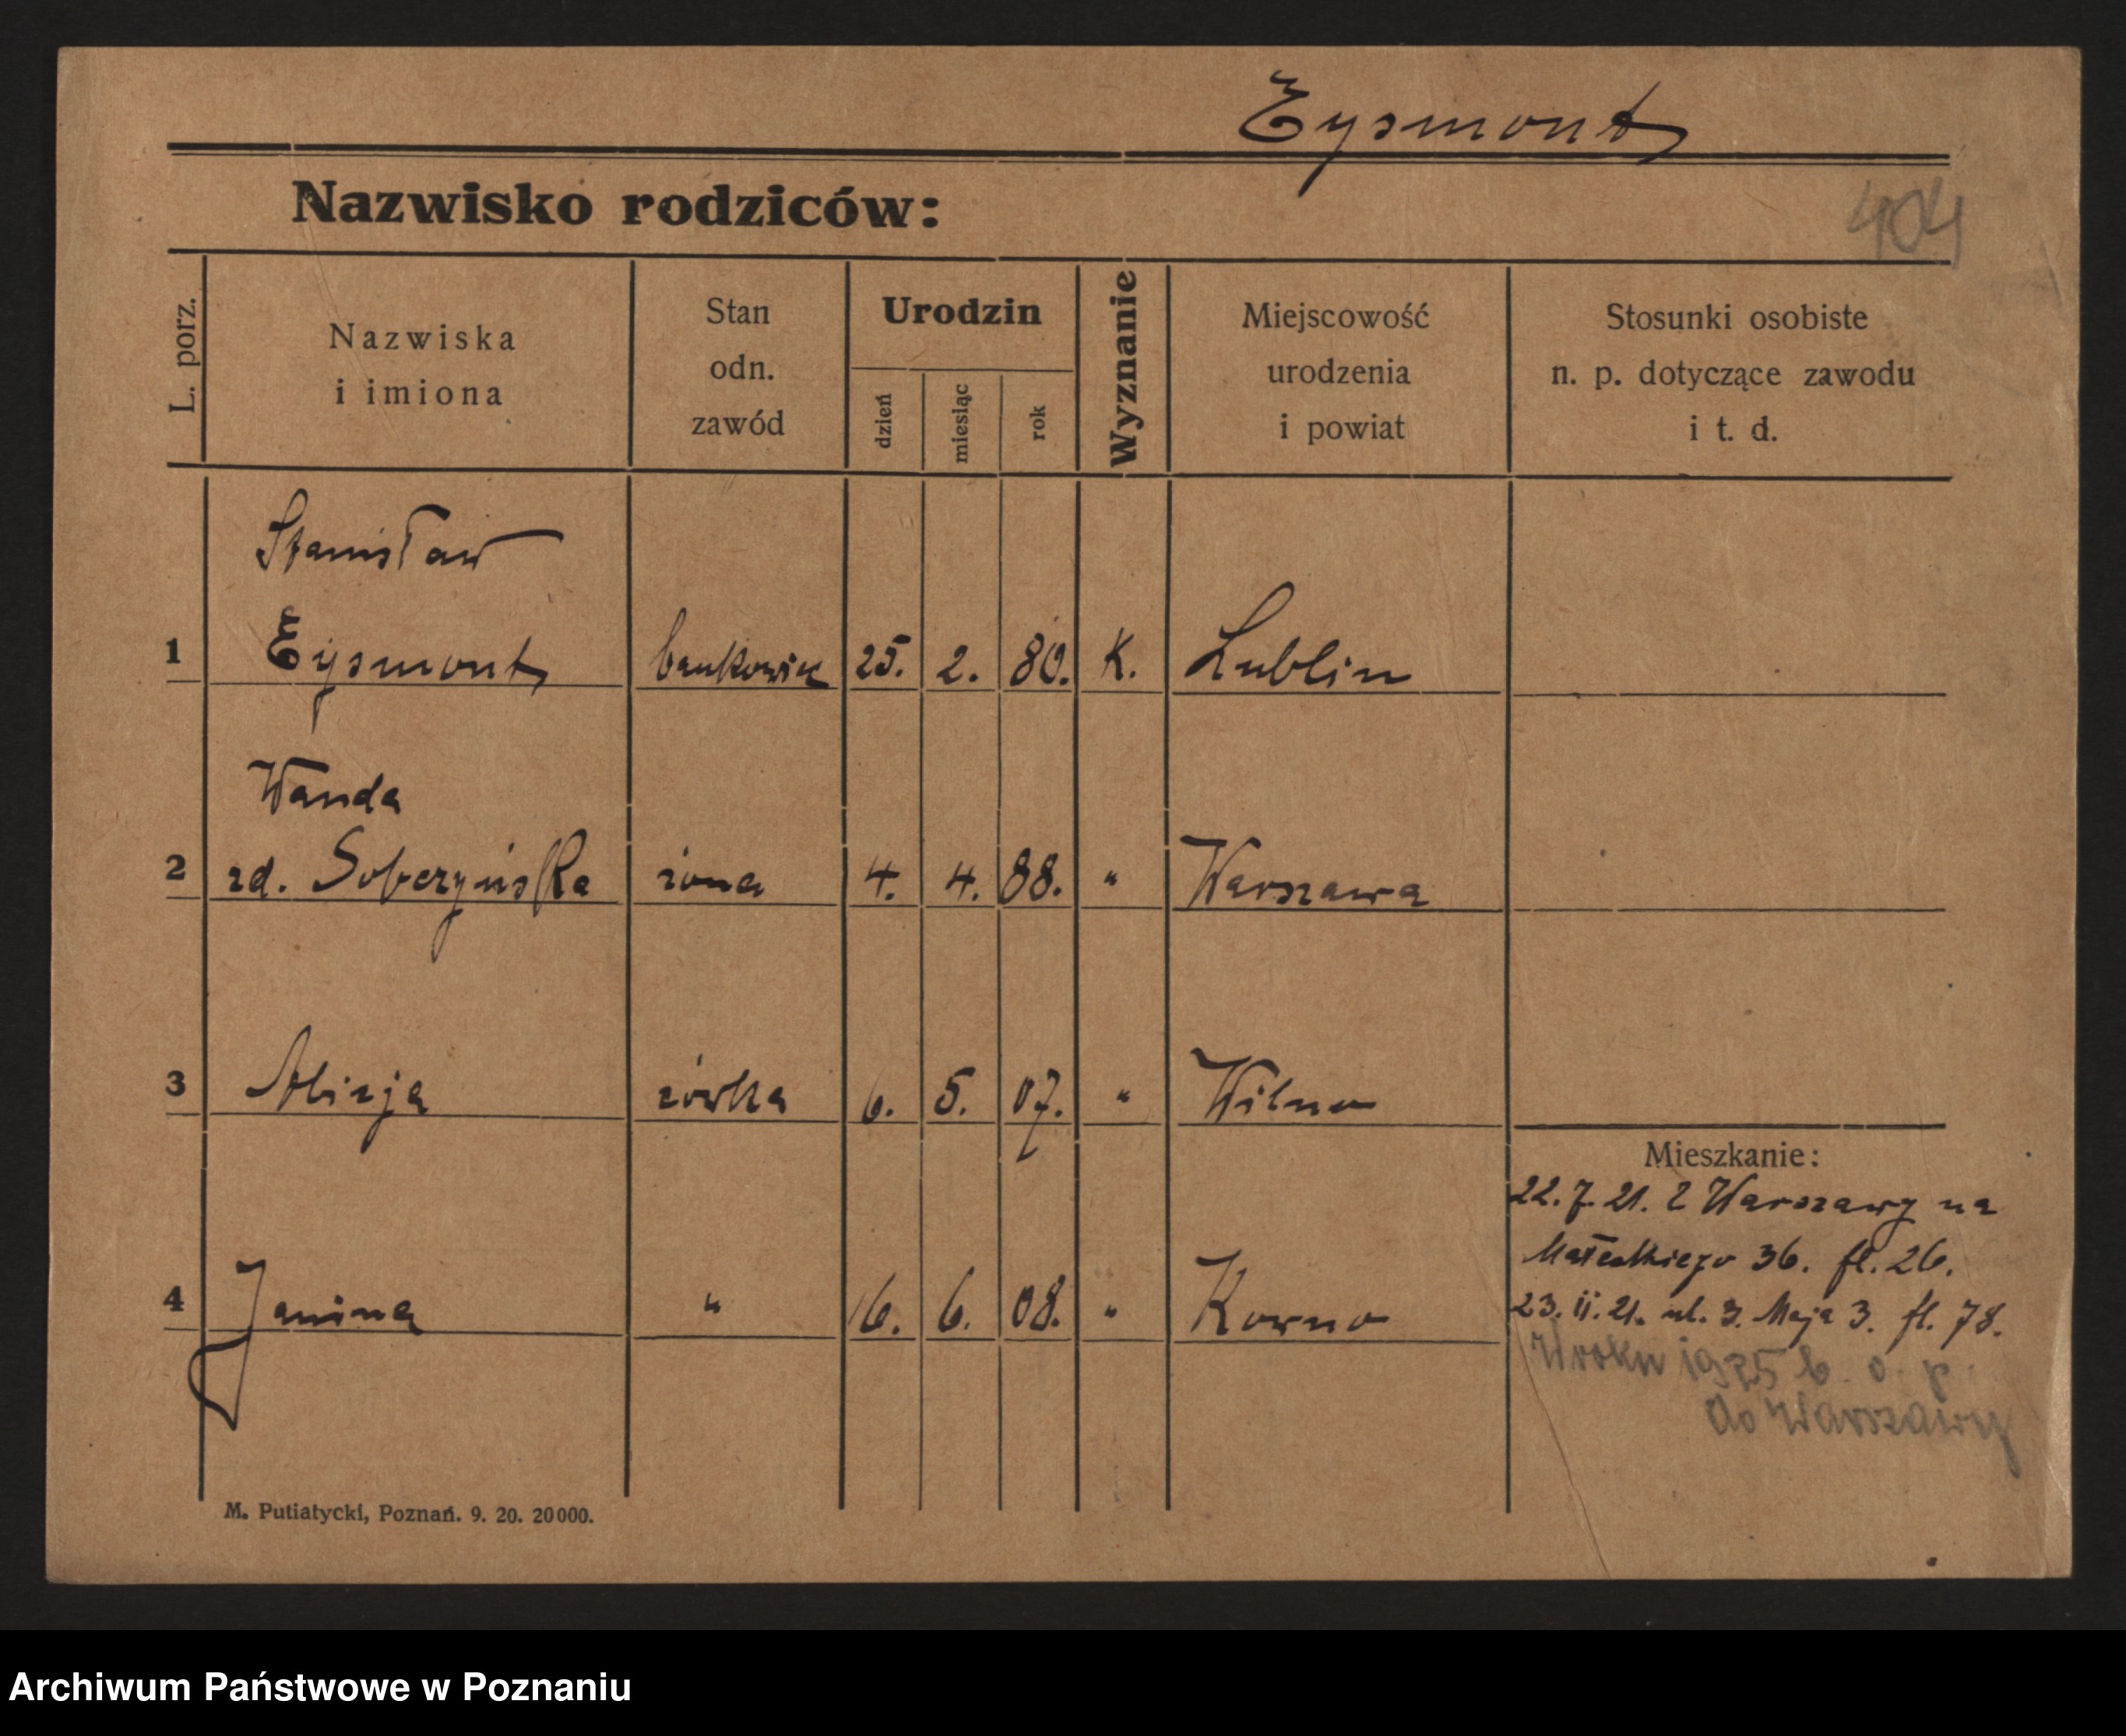 Eysmont
Nazwisko rodziców:
404
L. porz.
Nazwiska
i imiona
Stan
odn.
zawód
Urodzin
dzień
miesiąc
rok
Wyznanie
Miejscowość
urodzenia
i powiat
Stosunki osobiste
n. p. dotyczące zawodu
i t. d.
Stanisław
1 Eysmont bankowiec 25. 2. 80. K. Lublin
Wanda
2 zd. żona 4. 4. 88. " Warszawa
3 Alicja córka 6. 5. 07. " Wilno
Mieszkanie:
22. 7. 21. z Warszawy na
Małeckiego 36. fl. 26.
4 Janina " 16. 6. 08. " Kowno
23. ii. 21. ul. 3. Maja 3. fl. 78.
W roku 1925 b. o. p.
do Warszawy
M. Putiatycki, Poznań. 9. 20. 20000.
Archiwum Państwowe w Poznaniu